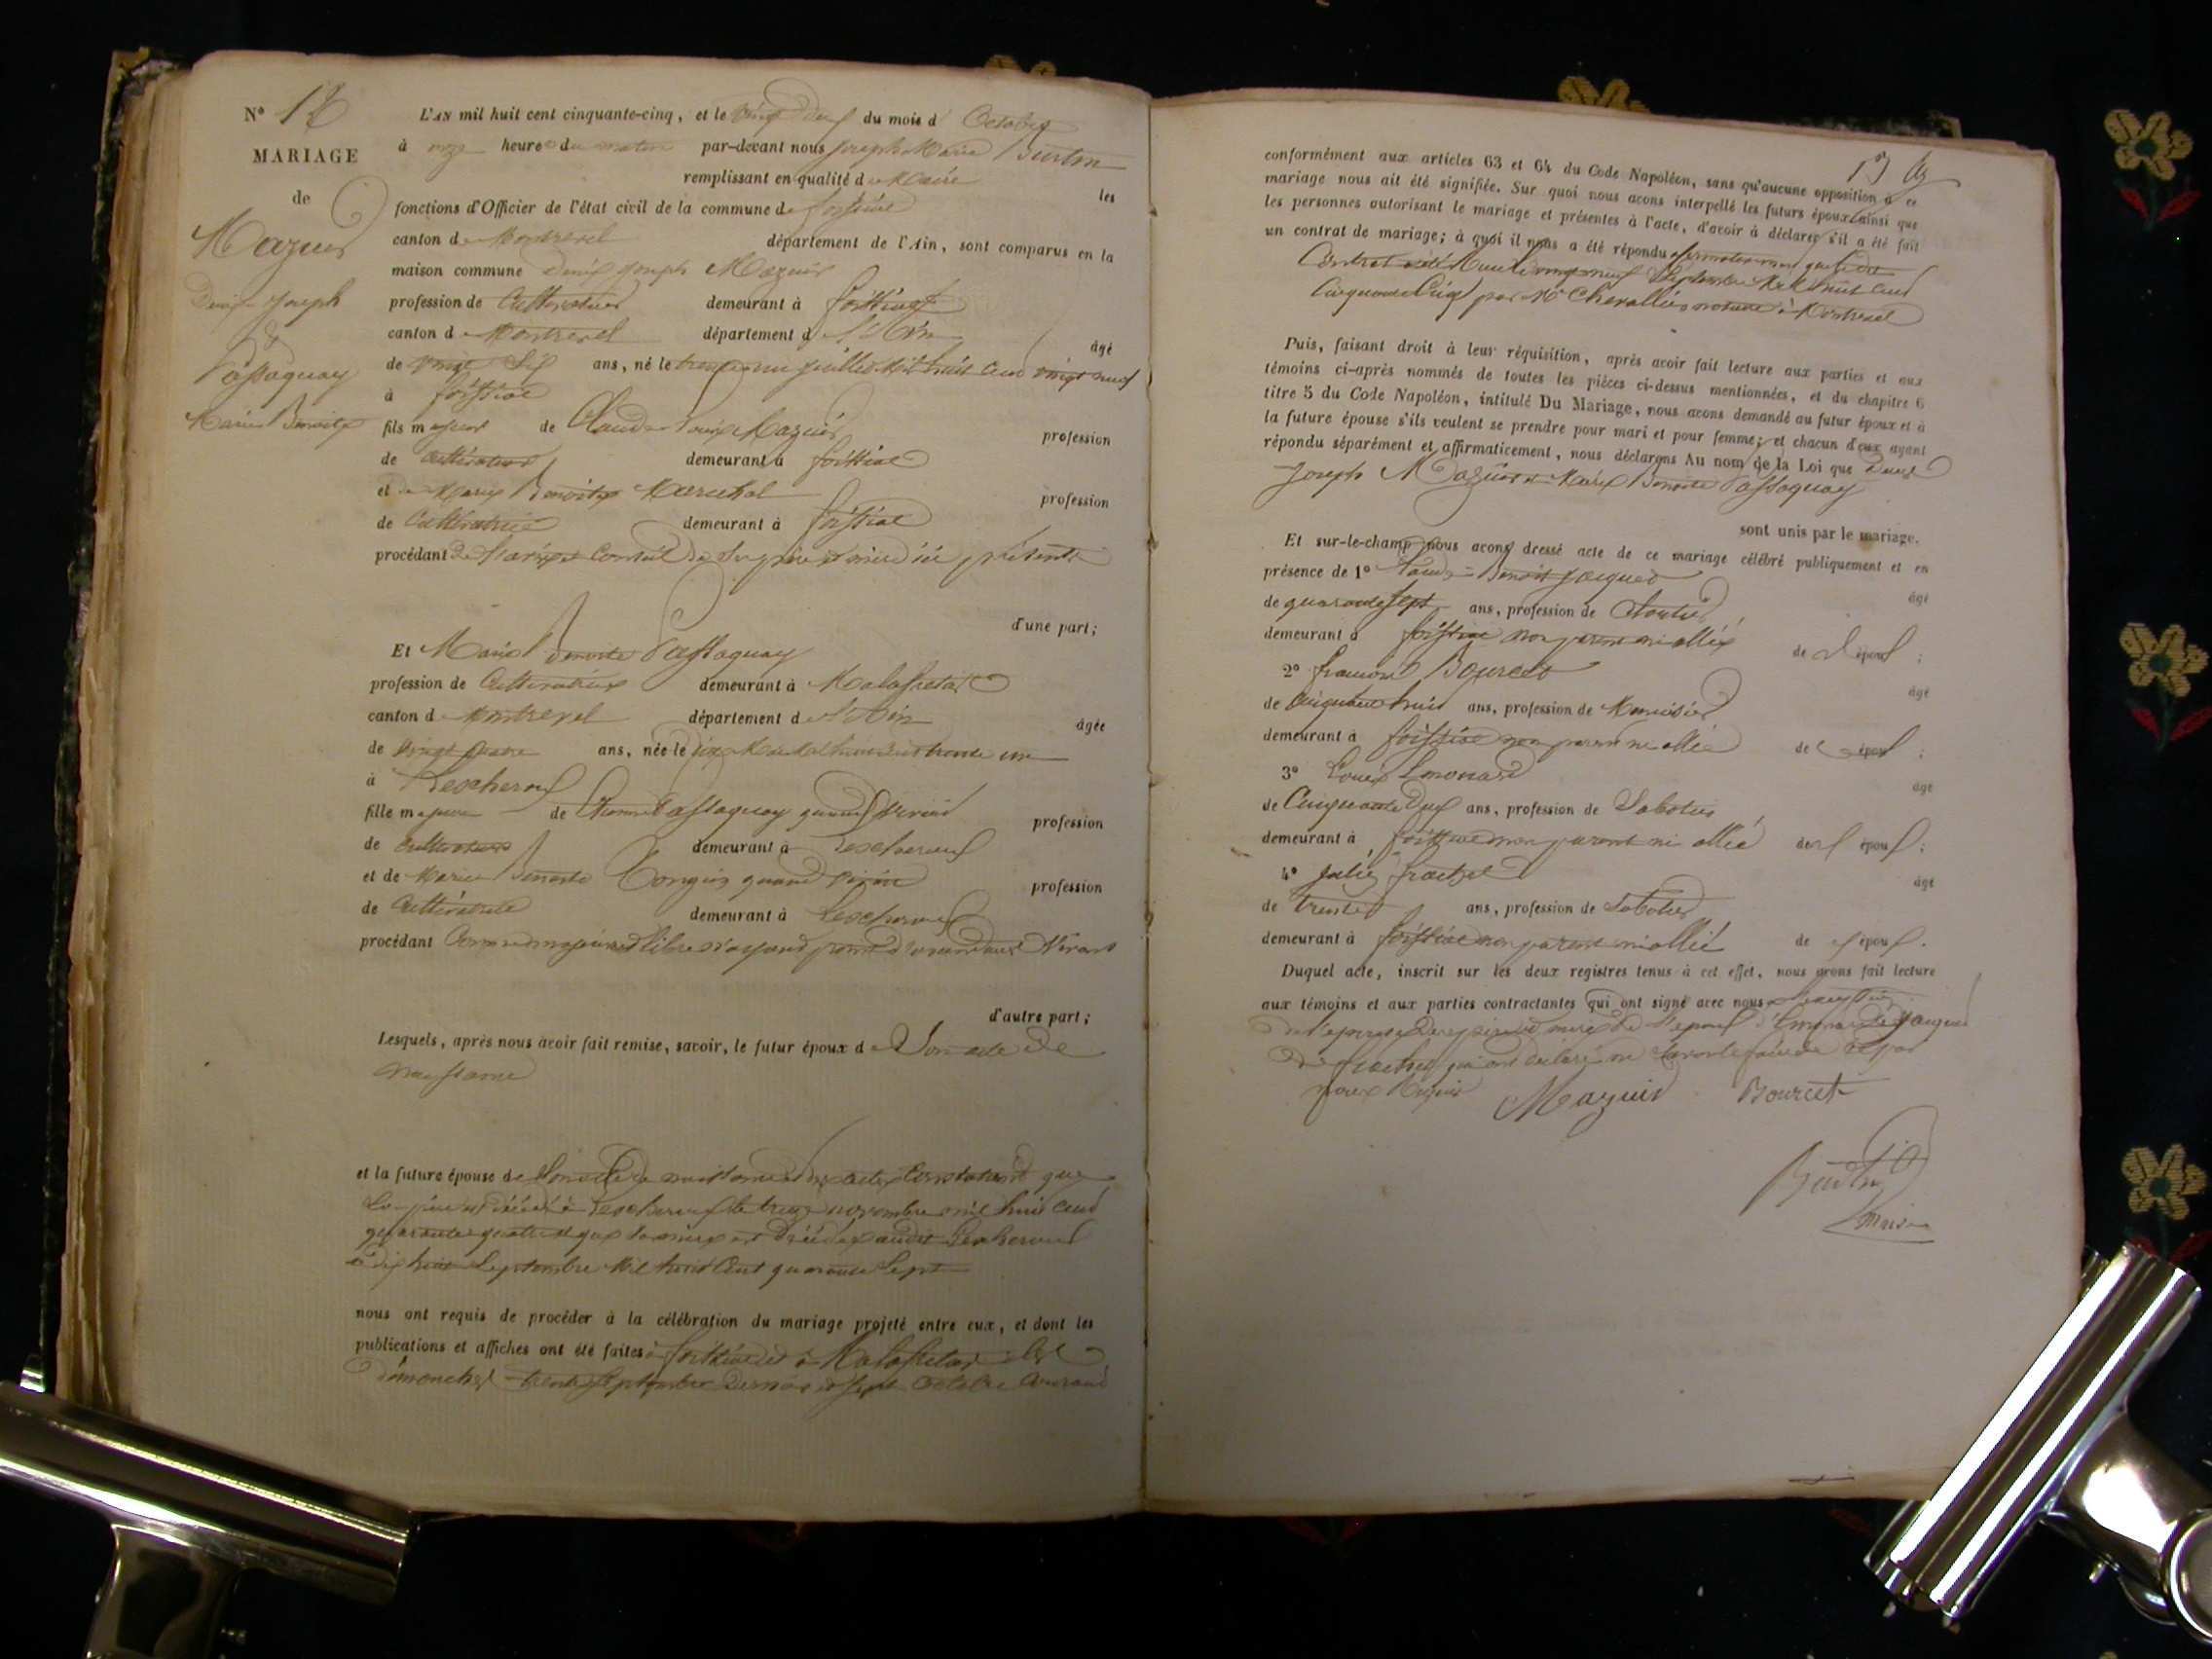 N° 12
MARIAGE
de
Mazuir
Denis Joseph
&
Passaquay
Marie Benoite
L'AN mil huit cent cinquante-cinq, et le vingt deux du mois d' Octobre
à onze heure du matin par-devant nous Joseph Marie Burtin
remplissant en qualité de Maire les
fonctions d'Officier de l'état civil de la commune de foissiat
canton de Montrevel département de l'Ain, sont comparus en la
maison commune Denis Joseph Mazuir
profession de Cultivateur demeurant à foissiat
canton de Montrevel département d l'Ain âgé
de vingt six ans, né le trente un juillet mil huit cent vingt neuf
à foissiat
fils majeur de Claude Louis Mazuir profession
de Cultivateur demeurant à foissiat
et de Marie Benoite Marechal profession
de Cultivatrice demeurant à foissiat
procédant de l'avis et conseil de ses père et mère ici présents
d'une part;
Et Marie Benoite Passaquay
profession de Cultivatrice demeurant à Malafretaz
canton d Montrevel département d l'Ain âgée
de vingt quatre ans, née le dix Mai Mil huit cent trente un
à Lescheroux
fille majeure de Passaquay quand vivait profession
de Cultivateur demeurant à Lescheroux
et de Marie Benoite quand vivait profession
de Cultivatrice demeurant à Lescheroux
procédant Comme majeure et libre n'ayant point d'ascendants Vivant
d'autre part;
Lesquels, après nous avoir fait remise, savoir, le futur époux de Son acte de
naissance
et la future épouse de Son acte de naissance des actes Constatant que
Son père est décédé à Lescheroux le treize novembre mil huit cent
quarante quatre et que sa mère est décédée audit Lescheroux
le dix huit Septembre Mil huit Cent quarante Sept
nous ont requis de procéder à la célébration du mariage projeté entre eux, et dont les
publications et affiches ont été faites à foissiat et à Malafretaz les
dimanches trente Septembre dernier et sept Octobre Courant
conformément aux articles 63 et 64 du Code Napoléon, sans qu'aucune opposition à ce
mariage nous ait été signifiée. Sur quoi nous avons interpellé les futurs époux ainsi que
les personnes autorisant le mariage et présentes à l'acte, d'avoir à déclarer s'il a été fait
un contrat de mariage; à quoi il nous a été répondu affirmativement que ledit
Contrat a été Reçu le vingt neuf Septembre Mil huit Cent
Cinquante Cinq par Me Chevallier notaire à Montrevel
Puis, faisant droit à leur réquisition, après avoir fait lecture aux parties et aux
témoins ci-après nommés de toutes les pièces ci-dessus mentionnées, et du chapitre 6
titre 5 du Code Napoléon, intitulé Du Mariage, nous avons demandé au futur époux et à
la future épouse s'ils veulent se prendre pour mari et pour femme; et chacun d'eux ayant
répondu séparément et affirmativement, nous déclarons Au nom de la Loi que Denis
Joseph Mazuir et Marie Benoite Passaquay
sont unis par le mariage.
Et sur-le-champ nous avons dressé acte de ce mariage célébré publiquement et en
présence de 1° Claude Benoit Jacquet âgé
de quarante sept ans, profession de
demeurant à foissiat non parent ni allié de l'époux;
2° françois Bourcet âgé
de Cinquante huit ans, profession de Menuisier
demeurant à foissiat non parent ni allié de l'époux;
3° Louis âgé
de Cinquante Deux ans, profession de Sabotier
demeurant à foissiat non parent ni allié des époux;
4° âgé
de trente ans, profession de Sabotier
demeurant à foissiat non parent ni allié de époux.
Duquel acte, inscrit sur les deux registres tenus à cet effet, nous avons fait lecture
aux témoins et aux parties contractantes qui ont signé avec nous à l'exception
de l'épouse des père et mère de l'époux Jacquet
qui ont déclaré ne savoir le faire de ce par
nous Requis Mazuir Bourcet
Burtin
Maire